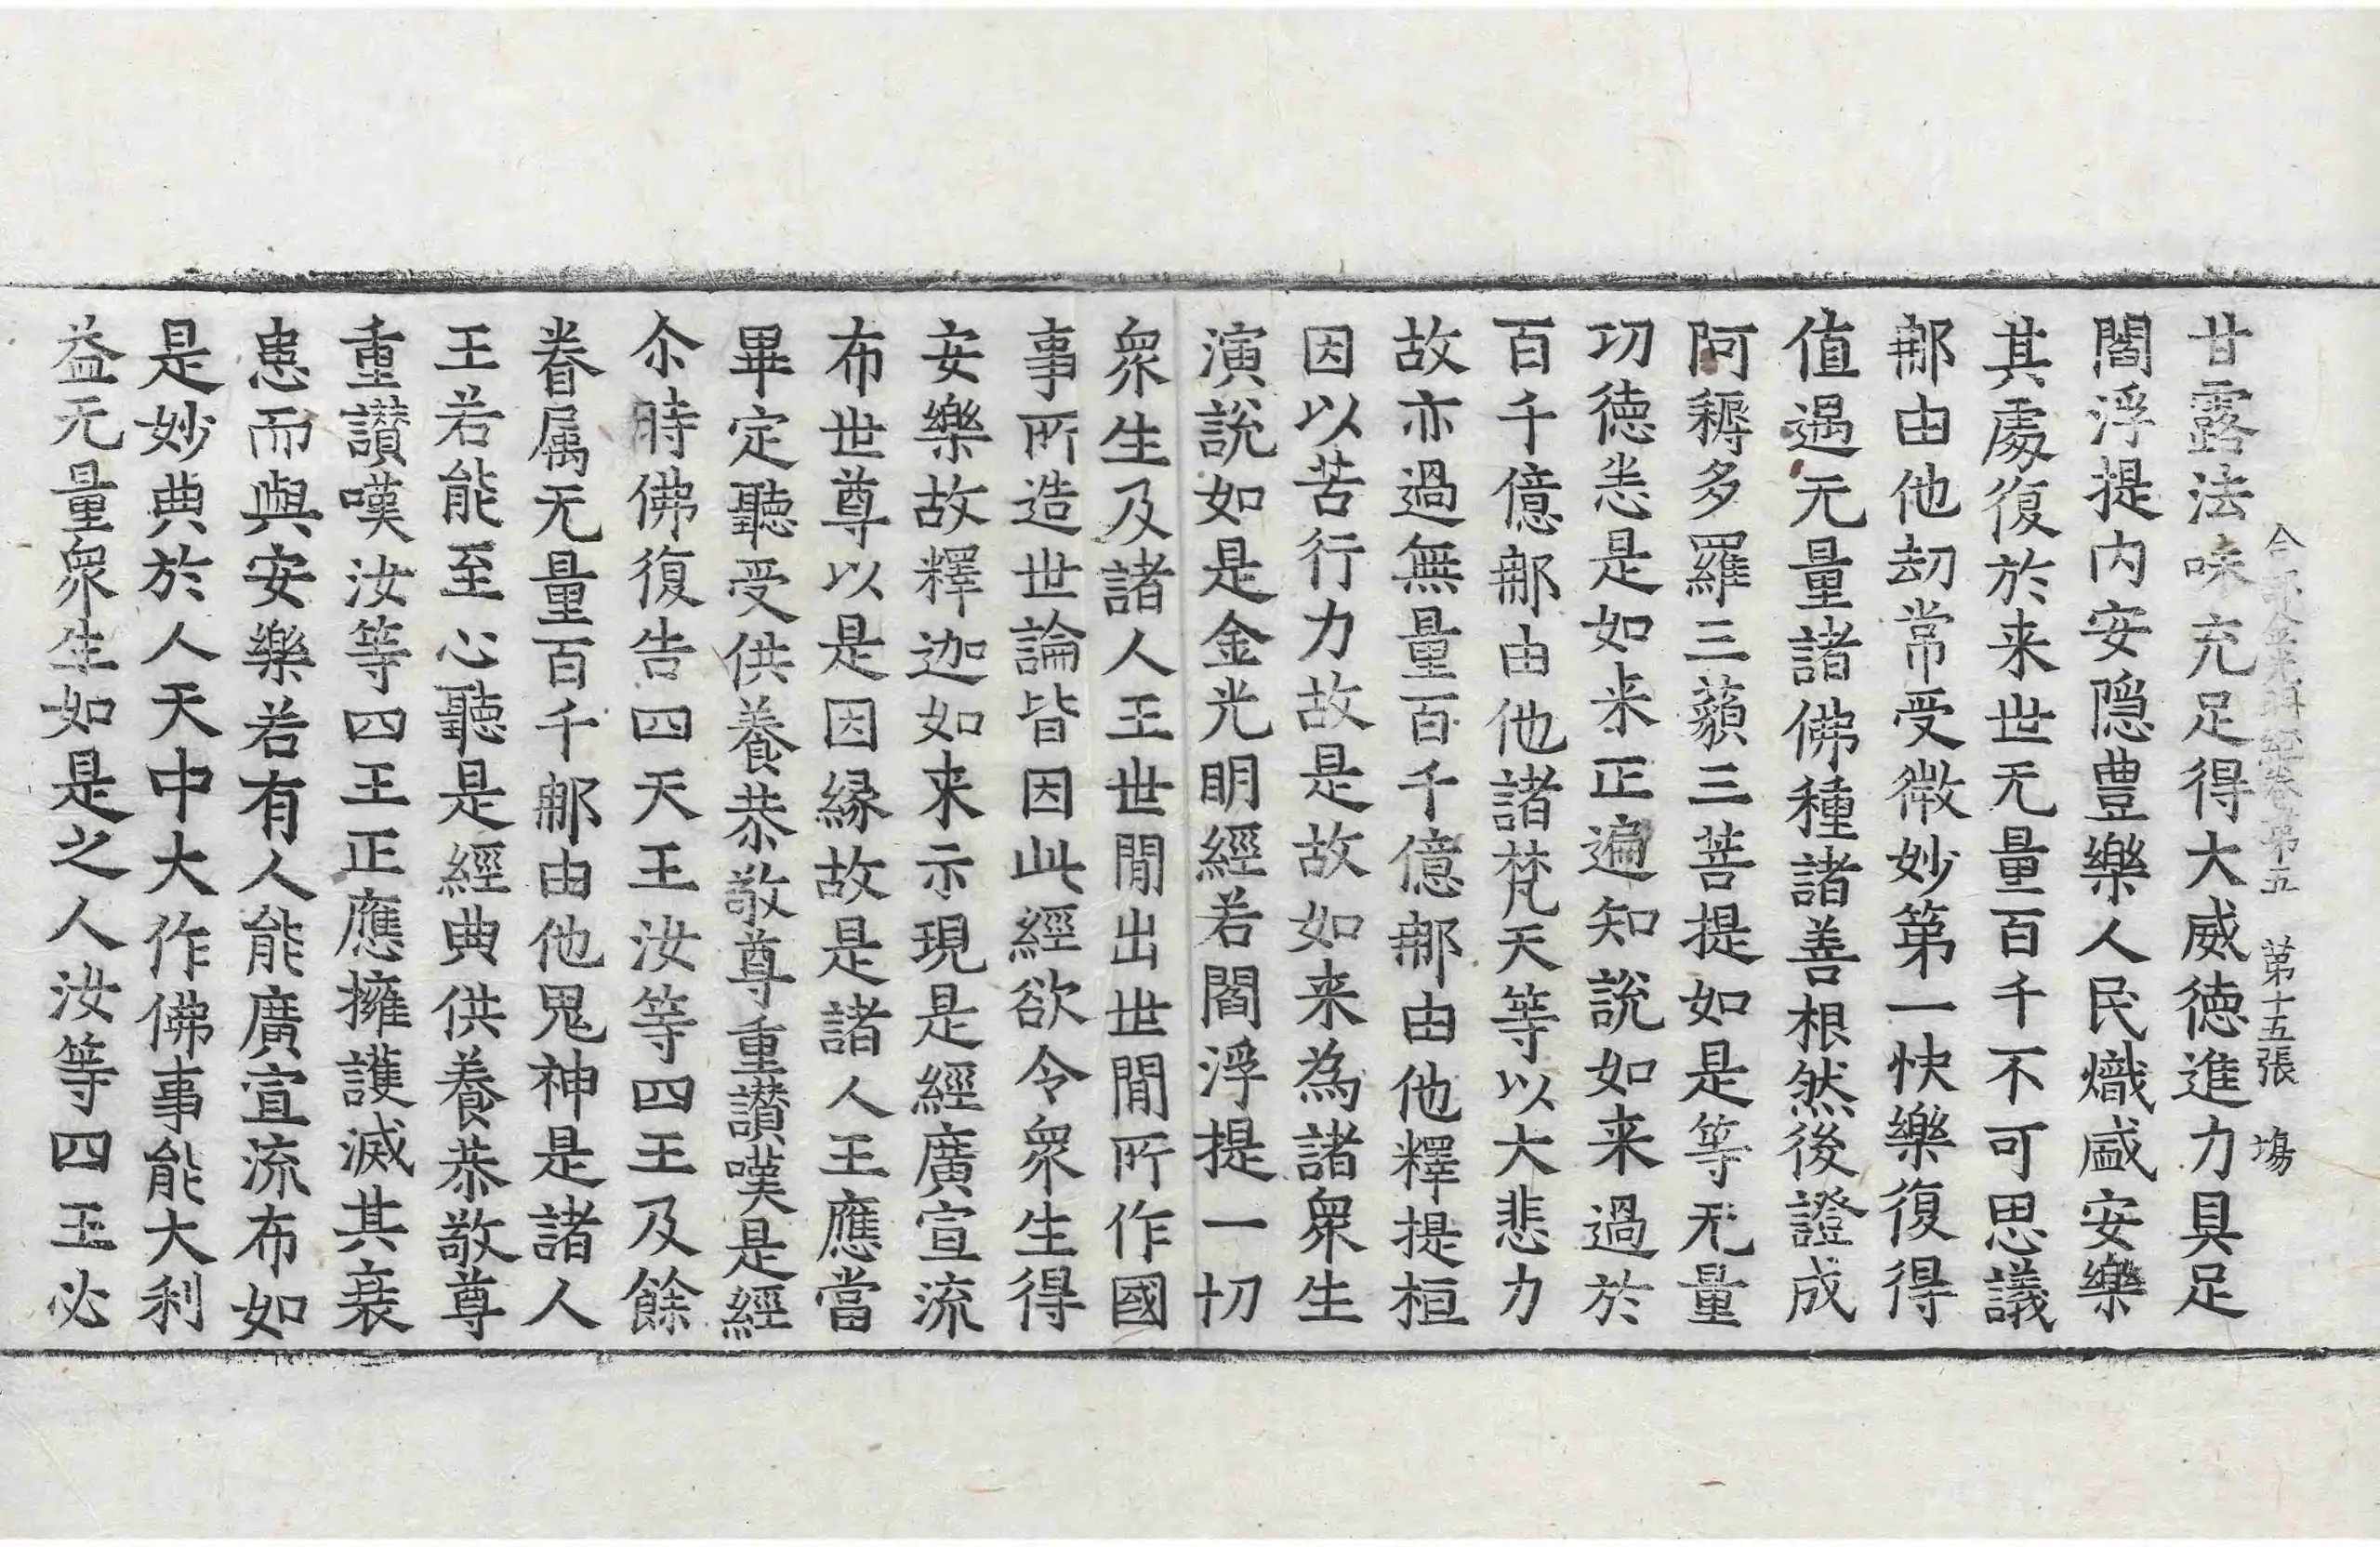 合部金光明經卷第五 第十五張 場
甘露法味充足得大威德進力具足
閻浮提內安隱豊樂人民熾盛安樂
其處復於来世无量百千不可思議
那由他劫常受微妙第一快樂復得
值遇无量諸佛種諸善根然後證成
阿耨多羅三藐三菩提如是等无量
功德悉是如来正遍知說如来過於
百千億那由他諸梵天等以大悲力
故亦過無量百千億那由他釋提桓
因以苦行力故是故如来為諸衆生
演說如是金光明經若閻浮提一切
衆生及諸人王世間出世間所作國
事所造世論皆因此經欲令衆生得
安樂故釋迦如来示現是經廣宣流
布世尊以是因緣故是諸人王應當
畢定聽受供養恭敬尊重讃嘆是經
尒時佛復告四天王汝等四王及餘
眷属无量百千那由他鬼神是諸人
王若能至心聽是經典供養恭敬尊
重讃嘆汝等四王正應擁護滅其衰
患而與安樂若有人能廣宣流布如
是妙典於人天中大作佛事能大利
益无量衆生如是之人汝等四王必